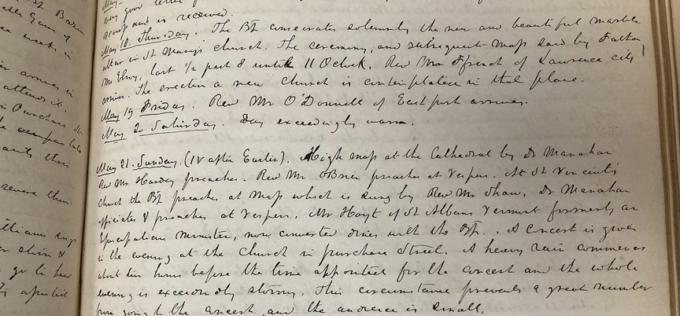 May 18 Thursday. The Bp. consecrates solemnly the new and beautiful marble
Altar in St Mary's Church. The ceremony, and subsequent Mass said by Father
last 1/2 past 8 until 11 O'clock. Rev Mr Ffrench of Lawrence city
arrives. The erection a new Church is contemplated in that place.
May 19 Friday. Rev Mr O'Donnell of Eastport arrives.
May 20 Saturday. Day exceedingly warm.
May 21. Sunday. (IV after Easter). High Mass at the Cathedral by Dr Manahan
Rev Mr Hardey preaches. Rev Mr O'Brien preaches at Vespers. At St Vincent's
Church the Bp. preaches at Mass which is sung by Rev Mr Shaw. Dr Manahan
officiates & preaches at Vespers. Mr Hoyt of St Albans Vermont formerly an
Episcopalian Minister, now converted dines with the Bp. A Concert is given
in the evening at the Church in purchase Street. A heavy rain commences
about two hours before the time appointed for the concert and the whole
evening is exceedingly stormy. This circumstance prevents a great number
from going to the concert, and the audience is small.